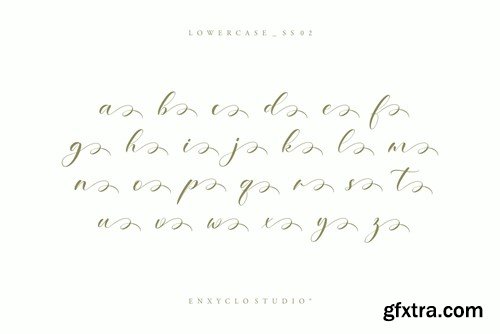 LOWERCASE_SS02
a b c d e f
g h i j k l m
n o p q r s t
u v w x y z
ENXYCLO STUDIO®
gfxtra.com